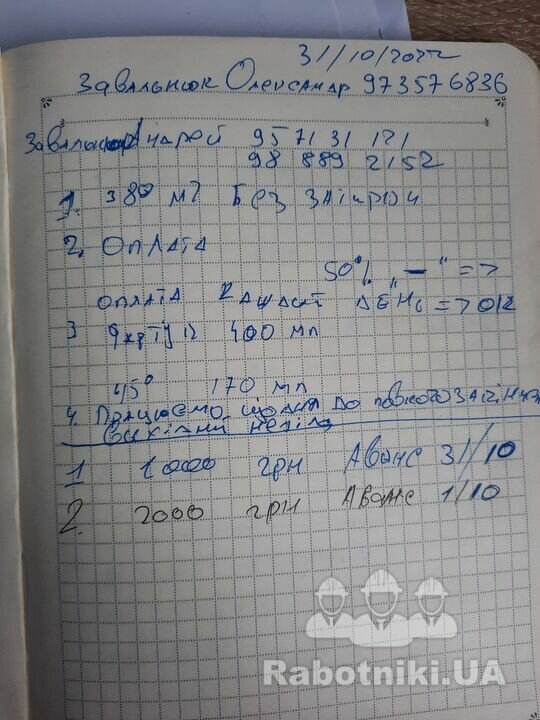 31/10/2022
Завальнюк Олександр 973576836
Завальнюк Андрей 95 71 31 121
98 889 2152
1. 380 м2 Без
2. Оплата
50% „—“ =>
оплата кажний день => ок
3 400 мп
45° 170 мп
4. Працюємо щодня до повного
вихідний неділя
1 1000 грн Аванс 31/10
2. 2000 грн Аванс 1/10
Rabotniki.UA